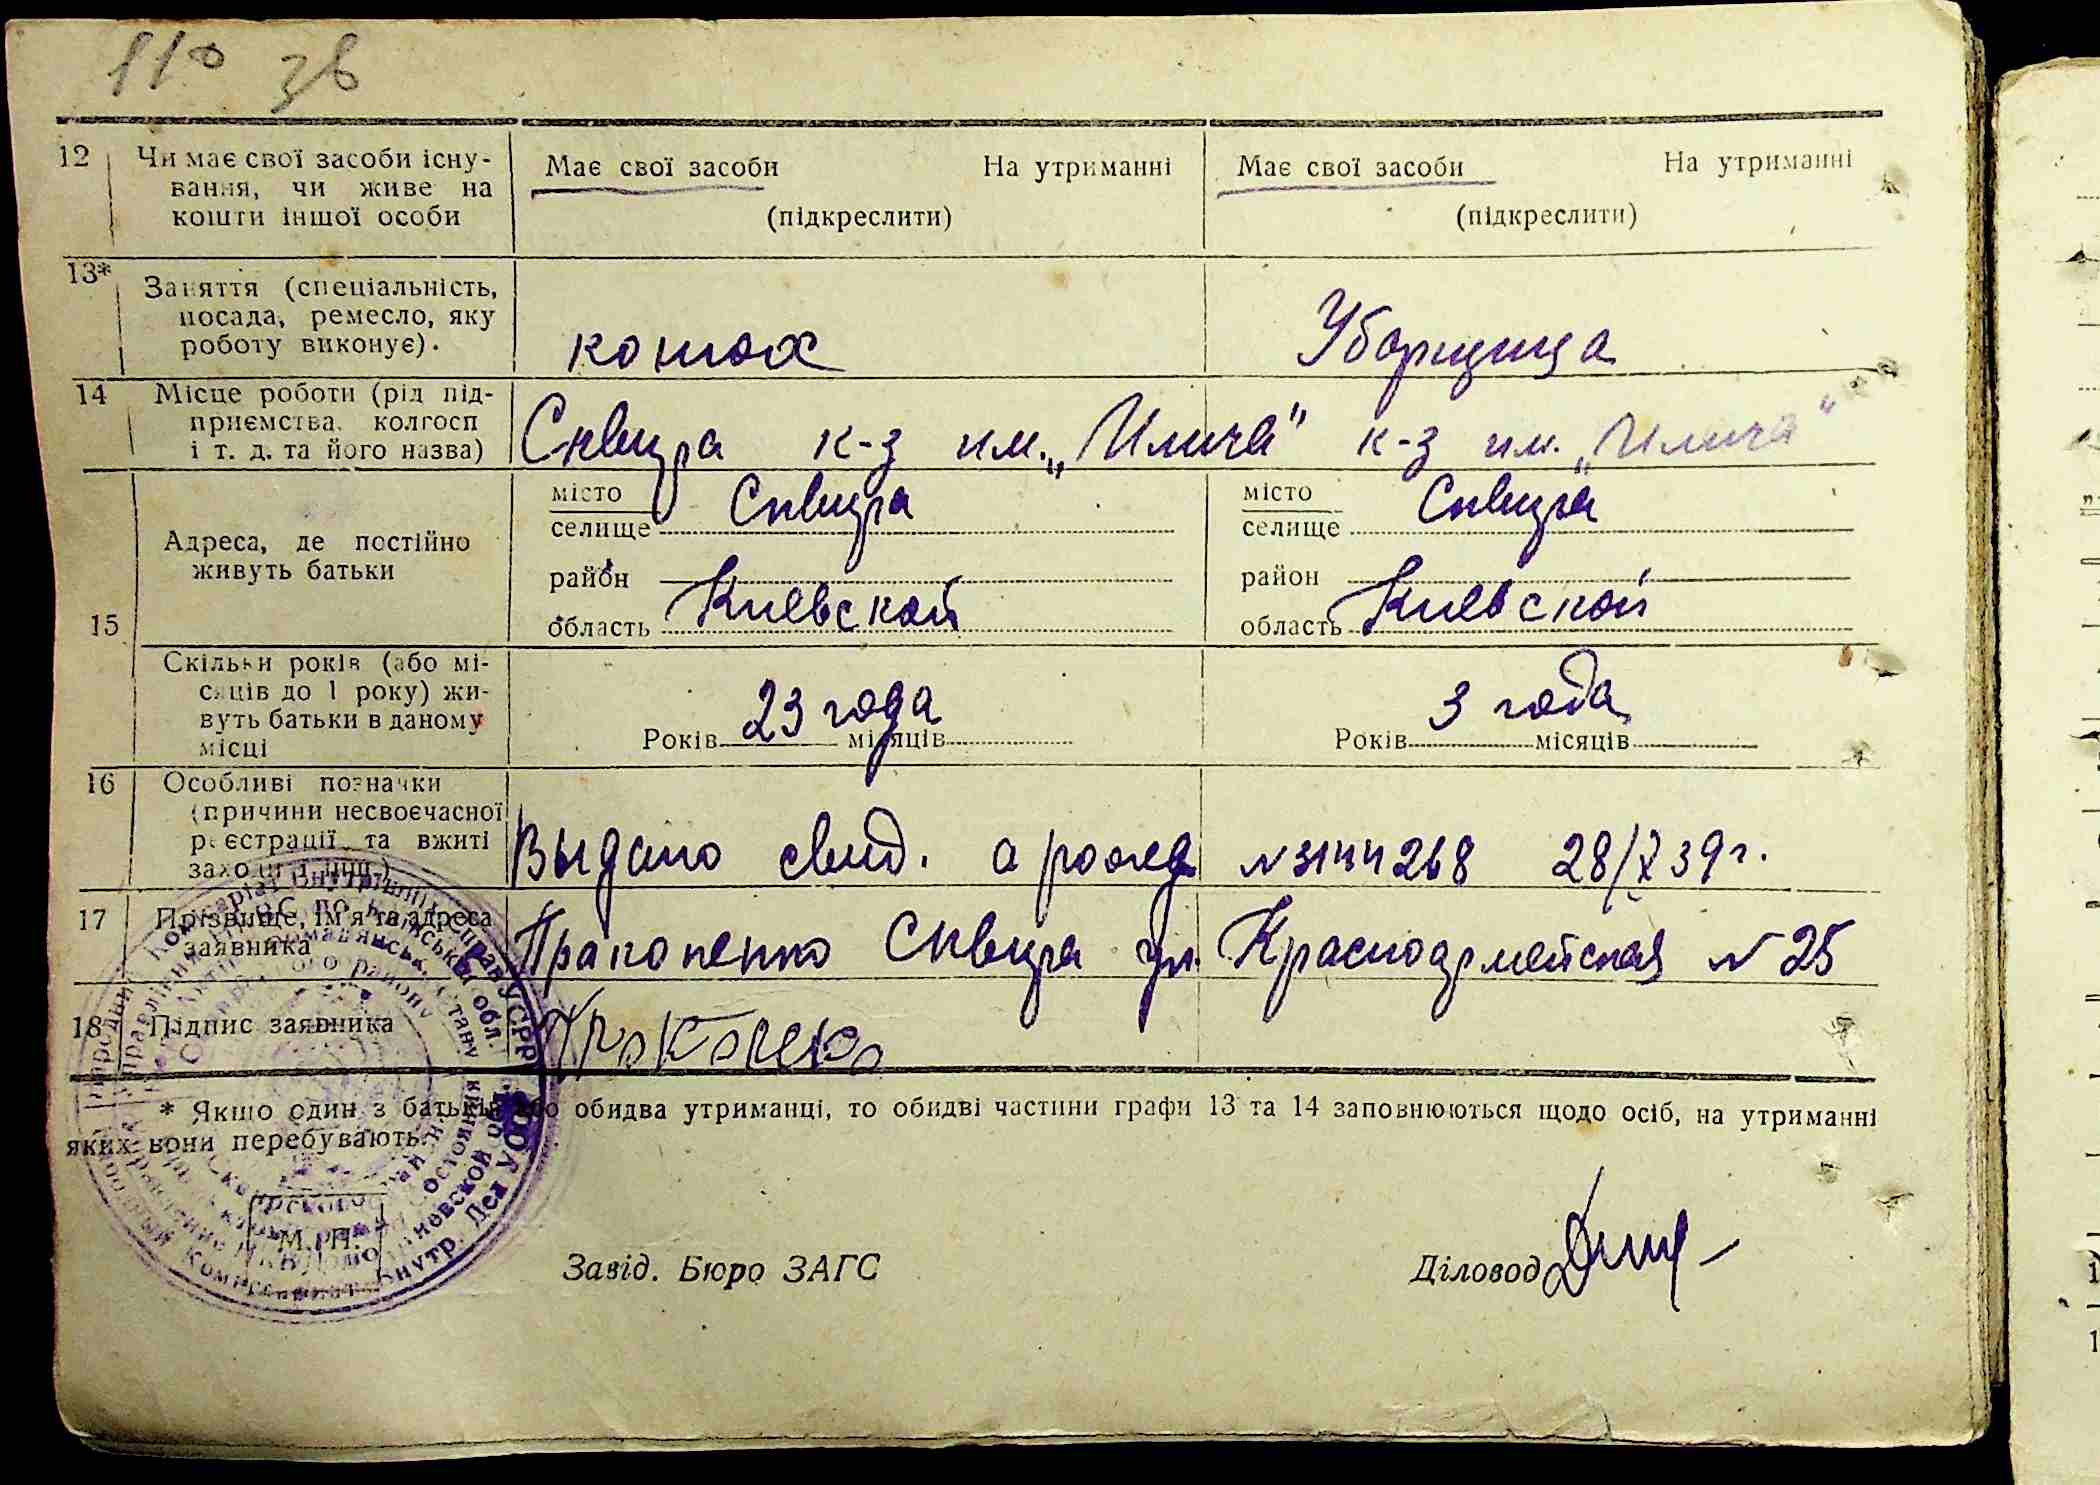 110 зв
12 Чи має свої засоби існу-
вання, чи живе на
кошти іншої особи
Має свої засоби На утриманні
(підкреслити)
Має свої засоби На утриманні
(підкреслити)
13* Заняття (спеціальність,
посада, ремесло, яку
роботу виконує).
конюх
Уборщица
14 Місце роботи (рід під-
приємства, колгосп
і т. д. та його назва)
Сквира к-з им. „Илича"
к-з им. „Илича"
15 Адреса, де постійно
живуть батьки
місто
селище Сквира
район
область Киевской
місто
селище Сквира
район
область Киевской
Скільки років (або мі-
сяців до 1 року) жи-
вуть батьки в даному
місці
Років 23 года місяців
Років 3 года місяців
16 Особливі позначки
(причини несвоєчасної
реєстрації та вжиті
заходи і інш.)
Выдано свид. о рожд №3144268 28/X 39 г.
17 Прізвище, ім'я та адреса
заявника
Пракопенко Сквира ул. Красноармейская № 25
18 Підпис заявника
* Якщо один з батьків або обидва утриманці, то обидві частини графи 13 та 14 заповнюються щодо осіб, на утриманні
яких вони перебувають.
М. П.
Завід. Бюро ЗАГС
Діловод